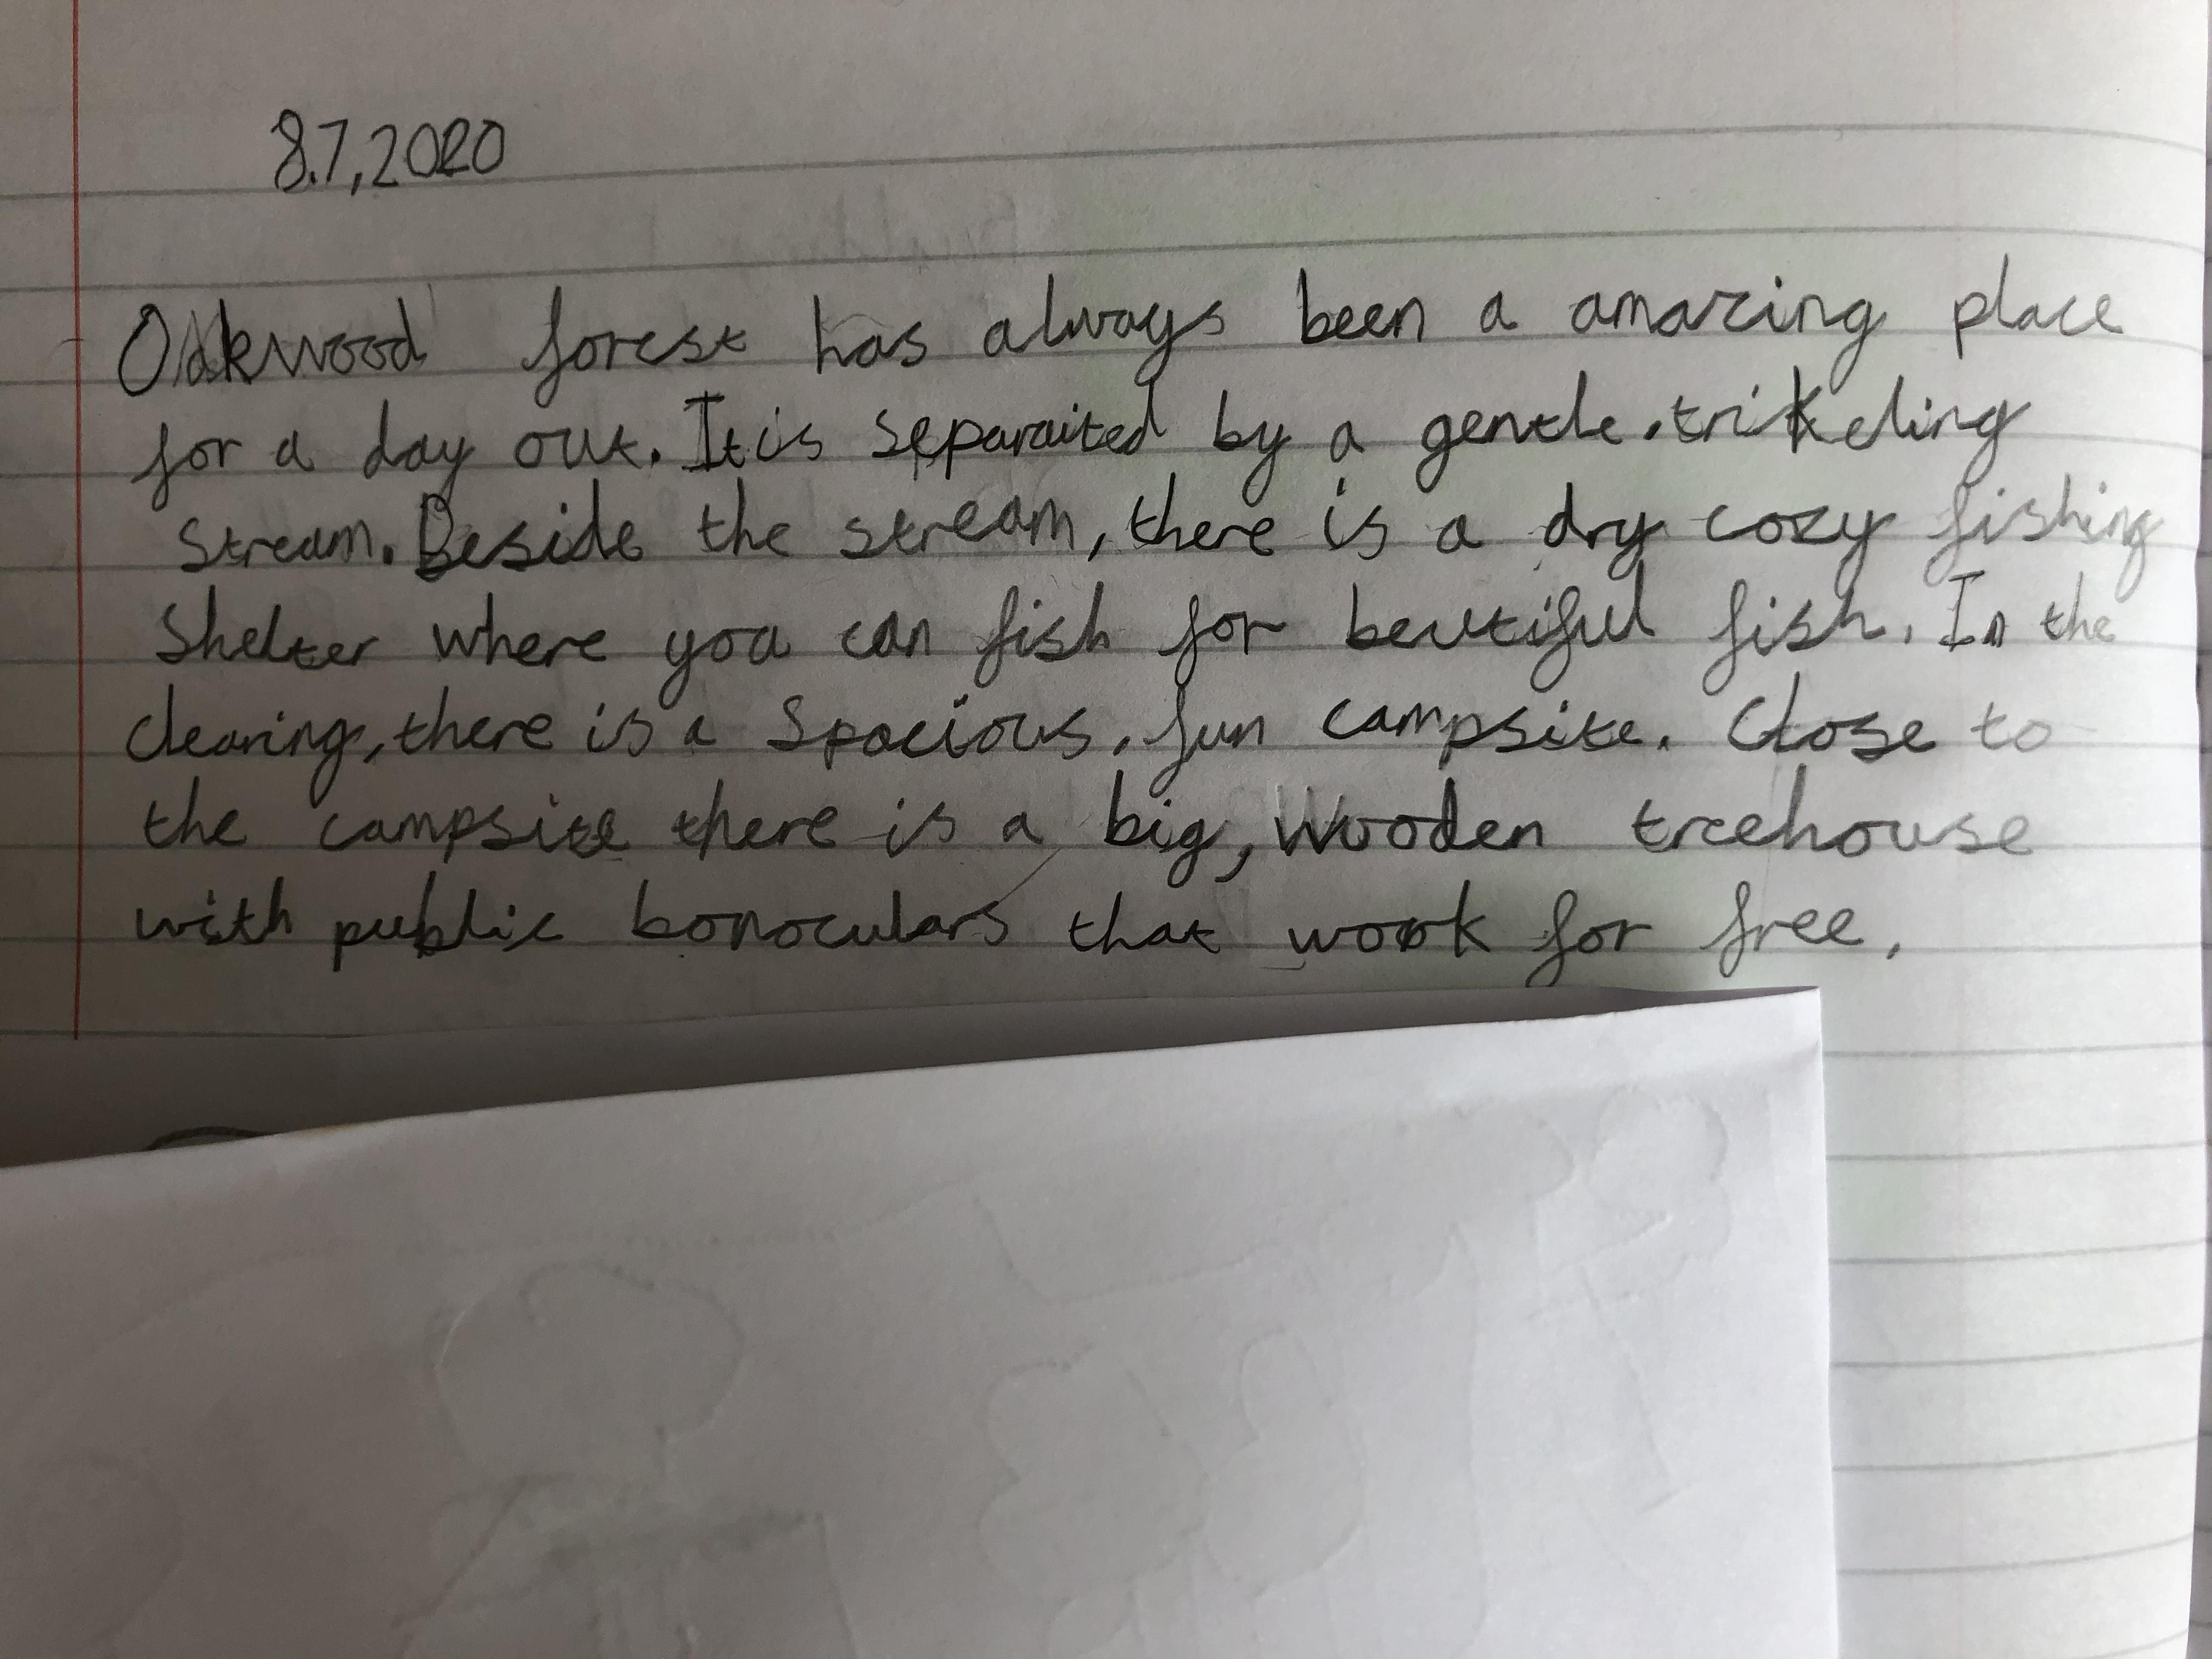 8.7,2020
Oakwood forest has always been a amazing place
for a day out. It is separaited by a gentle.trikeling
stream. Beside the stream, there is a dry cozy fishing
Shelter where you can fish for beutiful fish. In the
clearing, there is a Spacious, fun campsite. Close to
the campsite there is a big, Wooden treehouse
with public bonoculars that work for free,